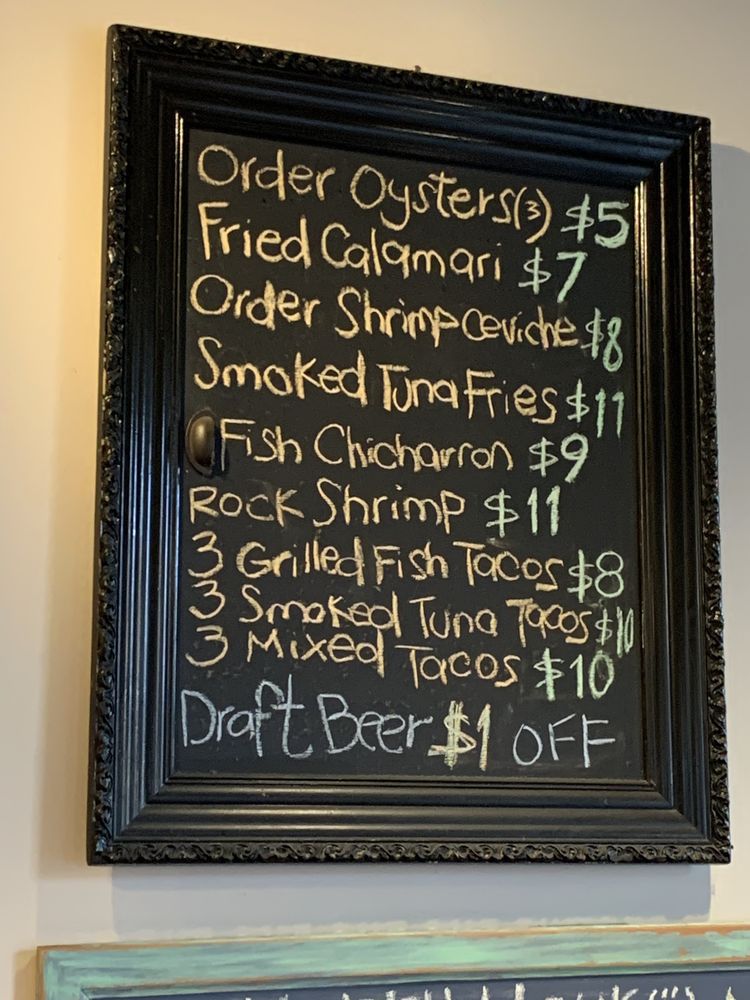 Order Oysters(3) $5
Fried Calamari $7
Order Shrimp Ceviche $8
Smoked Tuna Fries $11
Fish Chicharron $9
Rock Shrimp $11
3 Grilled Fish Tacos $8
3 Smoked Tuna Tacos $10
3 Mixed Tacos $10
Draft Beer $1 OFF